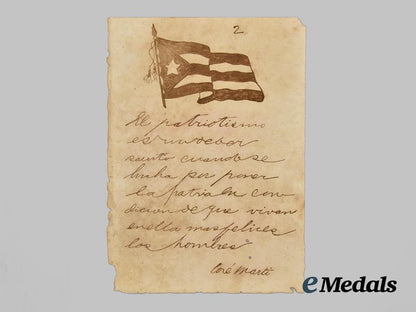 2
El patriotismo
es un deber
santo cuando se
lucha por poner
la patria en con
dicion de que vivan
en ella mas felices
los hombres"
José Martí
eMedals